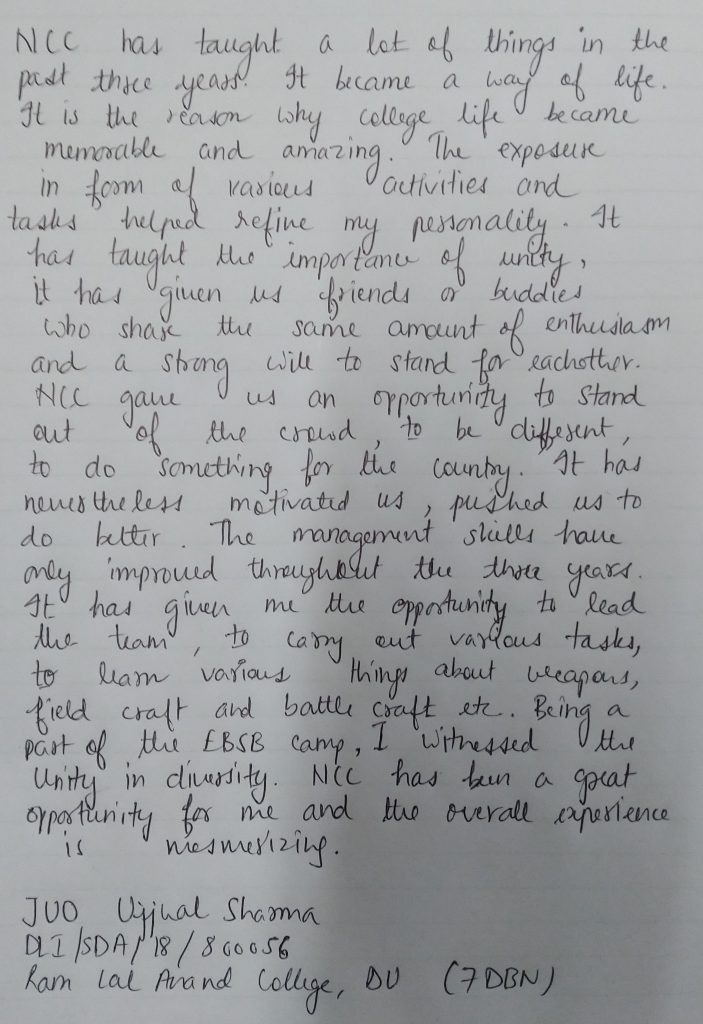 NCC has taught a lot of things in the
past three years. It became a way of life.
It is the reason why college life became
memorable and amazing. The exposure
in form of various activities and
tasks helped refine my personality. It
has taught the importance of unity,
it has given us friends or buddies
who share the same amount of enthusiasm
and a strong will to stand for eachother.
NCC gave us an opportunity to stand
out of the crowd, to be different,
to do something for the country. It has
nevertheless motivated us, pushed us to
do better. The management skills have
only improved throughout the three years.
It has given me the opportunity to lead
the team, to carry out various tasks,
to learn various things about weapons,
field craft and battle craft etc. Being a
part of the EBSB camp, I witnessed the
Unity in diversity. NCC has been a great
opportunity for me and the overall experience
is mesmerizing.
JUO Ujjwal Sharma
DLI/SDA/18/860056
Ram Lal Anand College, DU (7DBN)